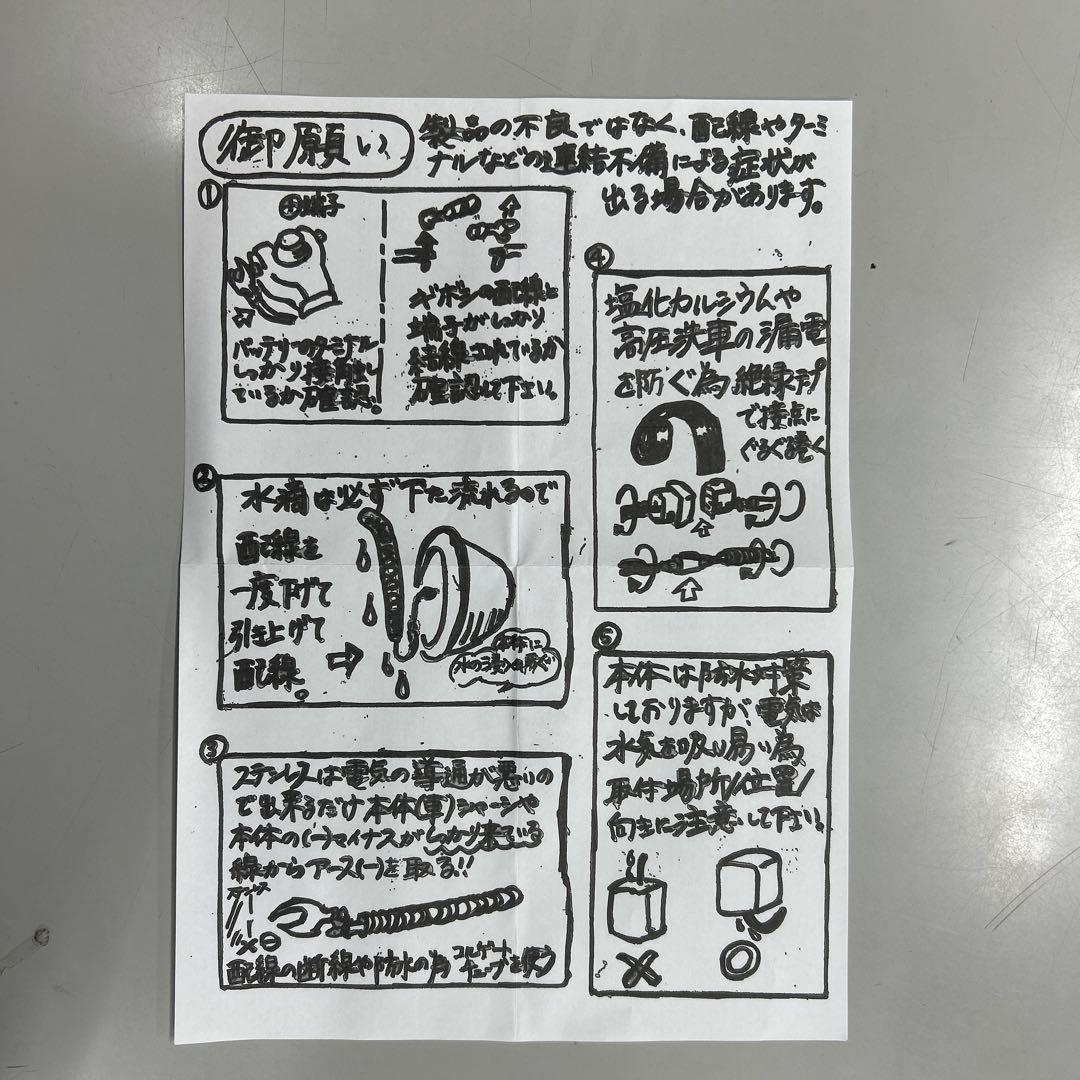 御願い
製品の不良ではなく、配線やターミ
ナルなどの連結不備による症状が
出る場合があります。
①
⊕端子
バッテリーのターミナル
しっかり接触し
ているか確認。
ギボシの配線と
端子がしっかり
結線されているか
確認して下さい。
②
水滴は必ず下に流れるので
配線を
一度下げて
引き上げて
配線。
本体に
水の浸入を防ぐ
③
ステンレスは電気の導通が悪いの
で出来るだけ本体(車)シャーシや
本体の(-)マイナスがしっかり来ている
線からアース(-)を取る!!
ステンレス
配線の断線や防水の為コルゲートチューブを使う
④
塩化カルシウムや
高圧洗車の漏電
を防ぐ為絶縁テープ
で接点に
ぐるぐる巻く
⑤
本体は防水対策
しておりますが、電気は
水気を吸い易い為
取付場所/位置/
向きに注意して下さい。